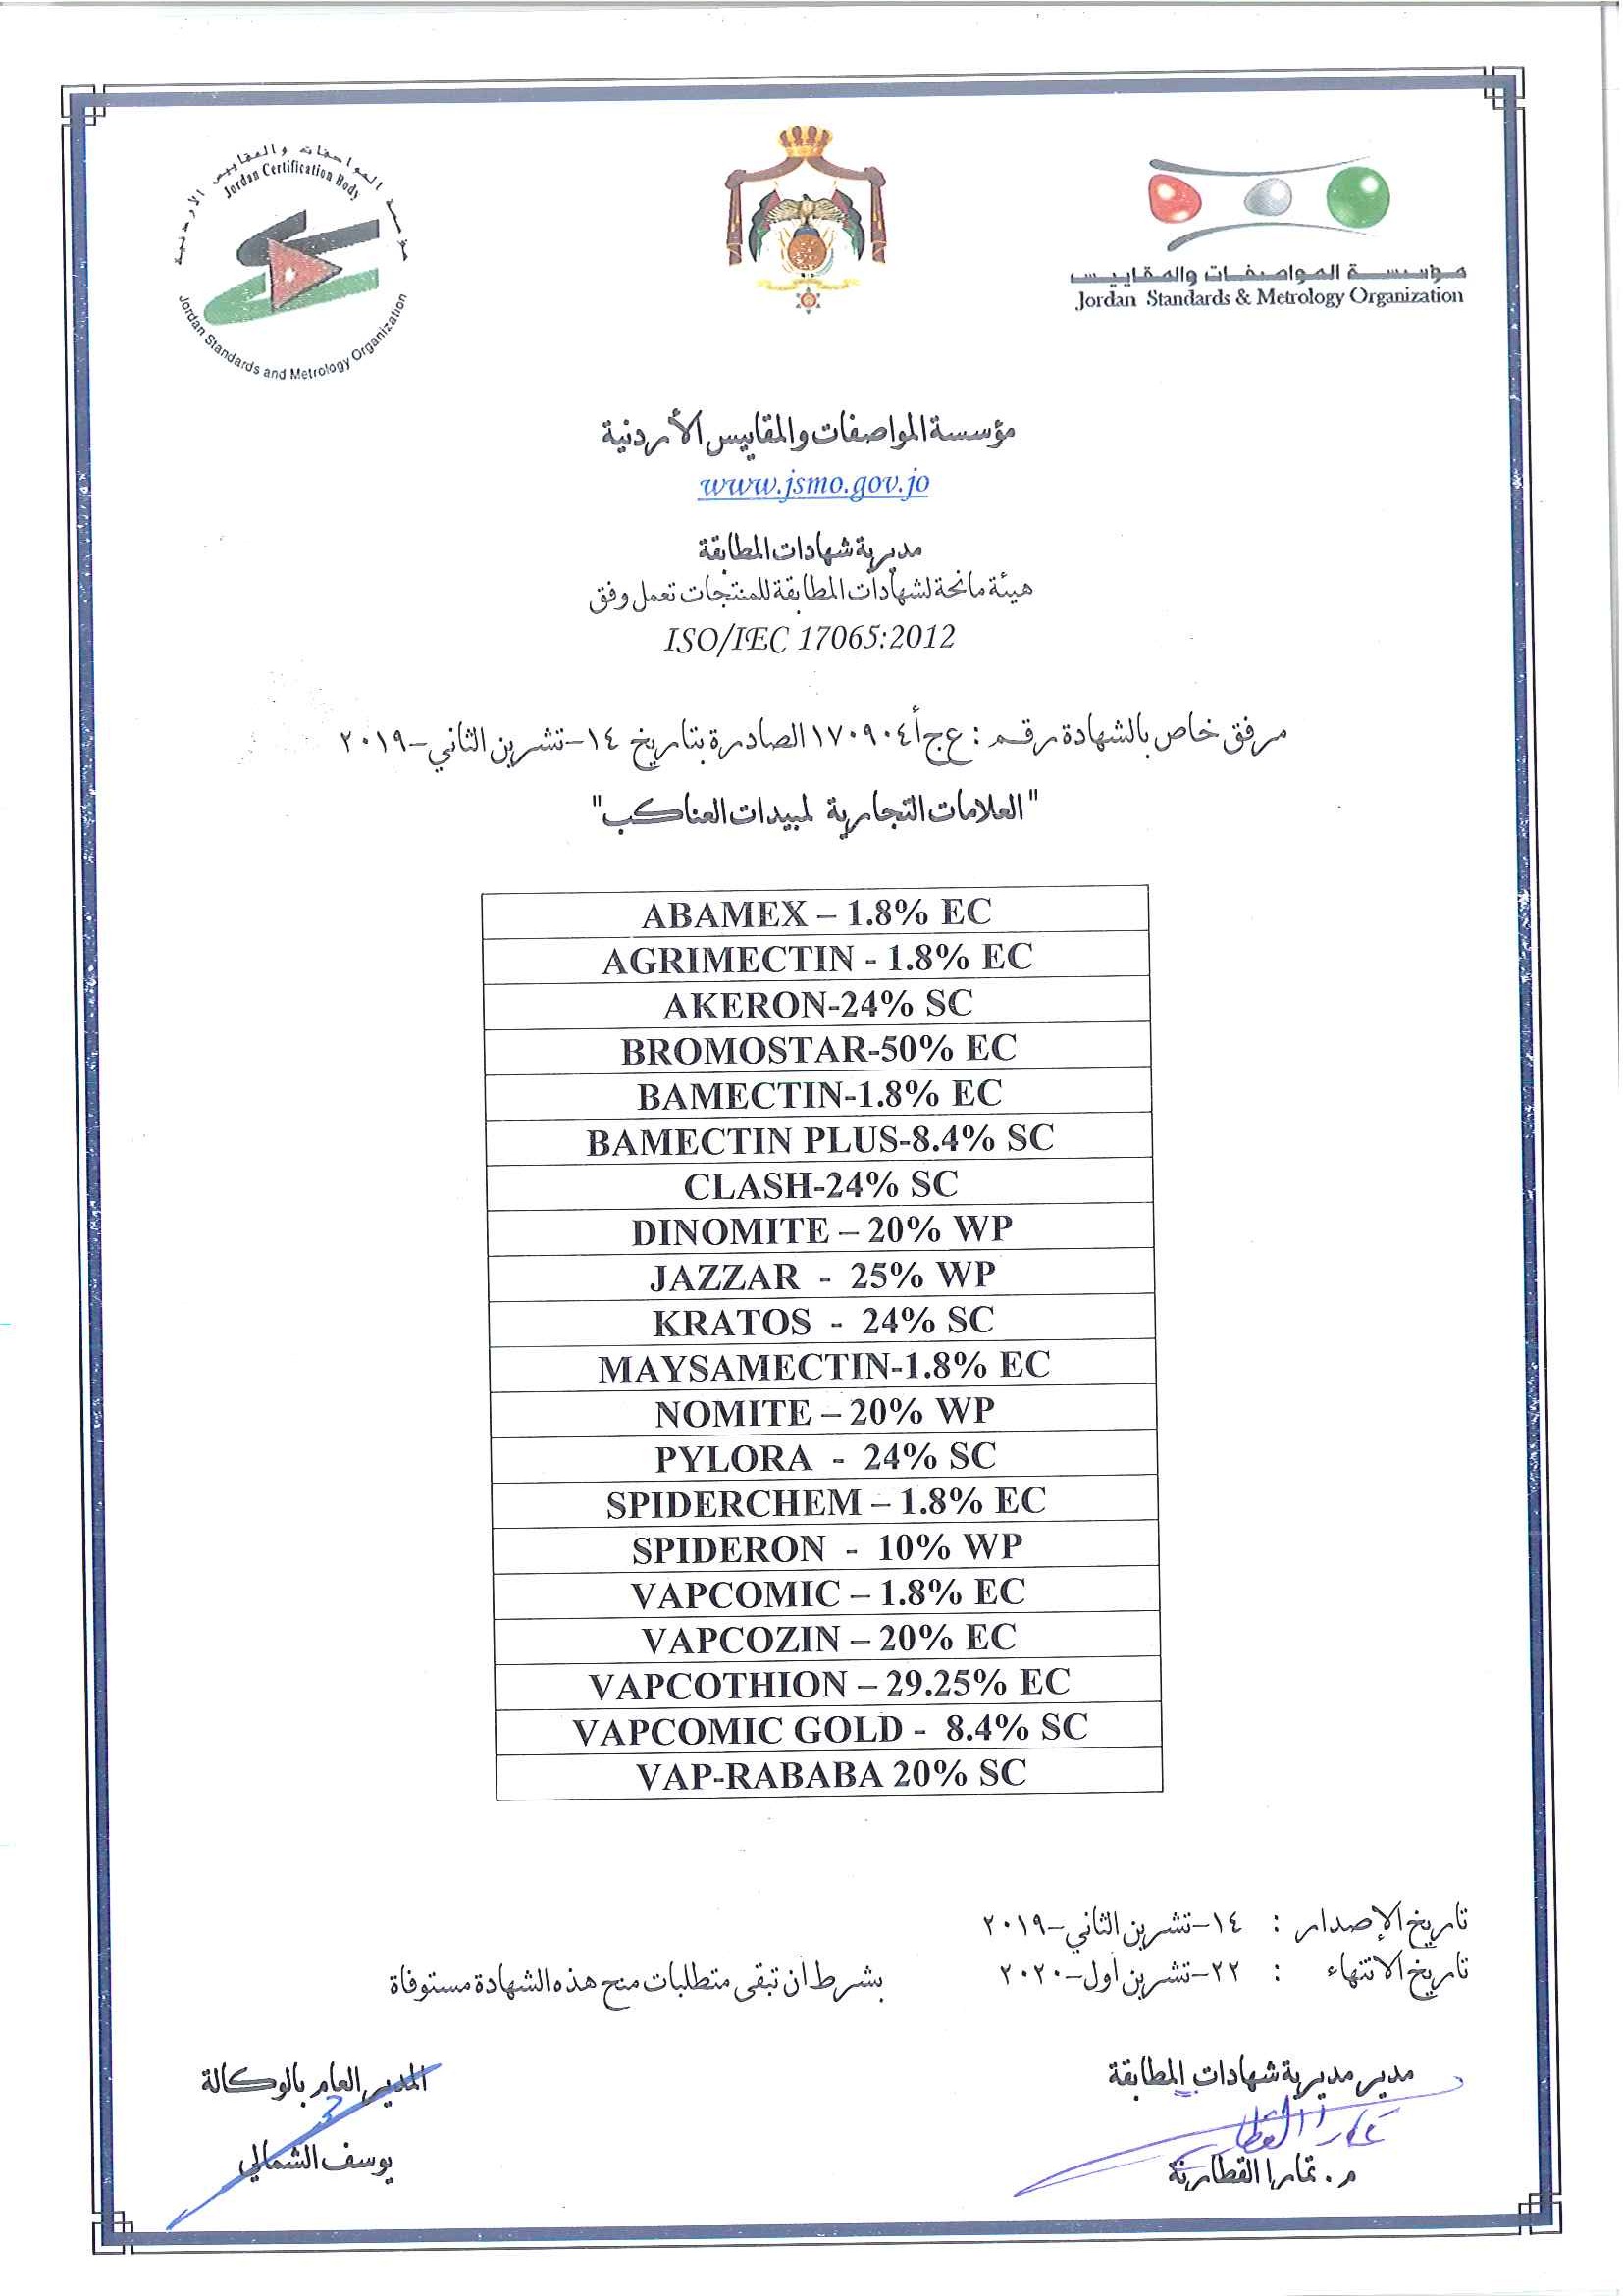 مؤسسة المواصفات والمقاييس الأردنية
Jordan Certification Body
Jordan Standards and Metrology Organization
مؤسسة المواصفات والمقاييس
Jordan Standards & Metrology Organization
مؤسسة المواصفات والمقاييس الأردنية
www.jsmo.gov.jo
مديرية شهادات المطابقة
هيئة مانحة لشهادات المطابقة للمنتجات تعمل وفق
ISO/IEC 17065:2012
مرفق خاص بالشهادة رقم : ع ج أ ١٧٠٩٠٤ الصادرة بتاريخ ١٤-تشرين الثاني-٢٠١٩
"العلامات التجارية لمبيدات العناكب"
ABAMEX – 1.8% EC
AGRIMECTIN - 1.8% EC
AKERON-24% SC
BROMOSTAR-50% EC
BAMECTIN-1.8% EC
BAMECTIN PLUS-8.4% SC
CLASH-24% SC
DINOMITE – 20% WP
JAZZAR - 25% WP
KRATOS - 24% SC
MAYSAMECTIN-1.8% EC
NOMITE – 20% WP
PYLORA - 24% SC
SPIDERCHEM – 1.8% EC
SPIDERON - 10% WP
VAPCOMIC – 1.8% EC
VAPCOZIN – 20% EC
VAPCOTHION – 29.25% EC
VAPCOMIC GOLD - 8.4% SC
VAP-RABABA 20% SC
تاريخ الإصدار : ١٤-تشرين الثاني-٢٠١٩
تاريخ الانتهاء : ٢٢-تشرين أول-٢٠٢٠ بشرط أن تبقى متطلبات منح هذه الشهادة مستوفاة
مدير مديرية شهادات المطابقة المدير العام بالوكالة
م. تمارا القطارنة يوسف الشمالي